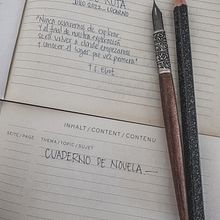 RUTA
JULIO 2022 - LOCARNO
"Nunca cesaremos de explorar
y el final de nuestra exploración
será volver a donde empezamos
y conocer el lugar por vez primera"
T.S. Eliot
INHALT/CONTENT/CONTENU
SEITE/PAGE THEMA/TOPIC/SUJET
CUADERNO DE NOVELA.—